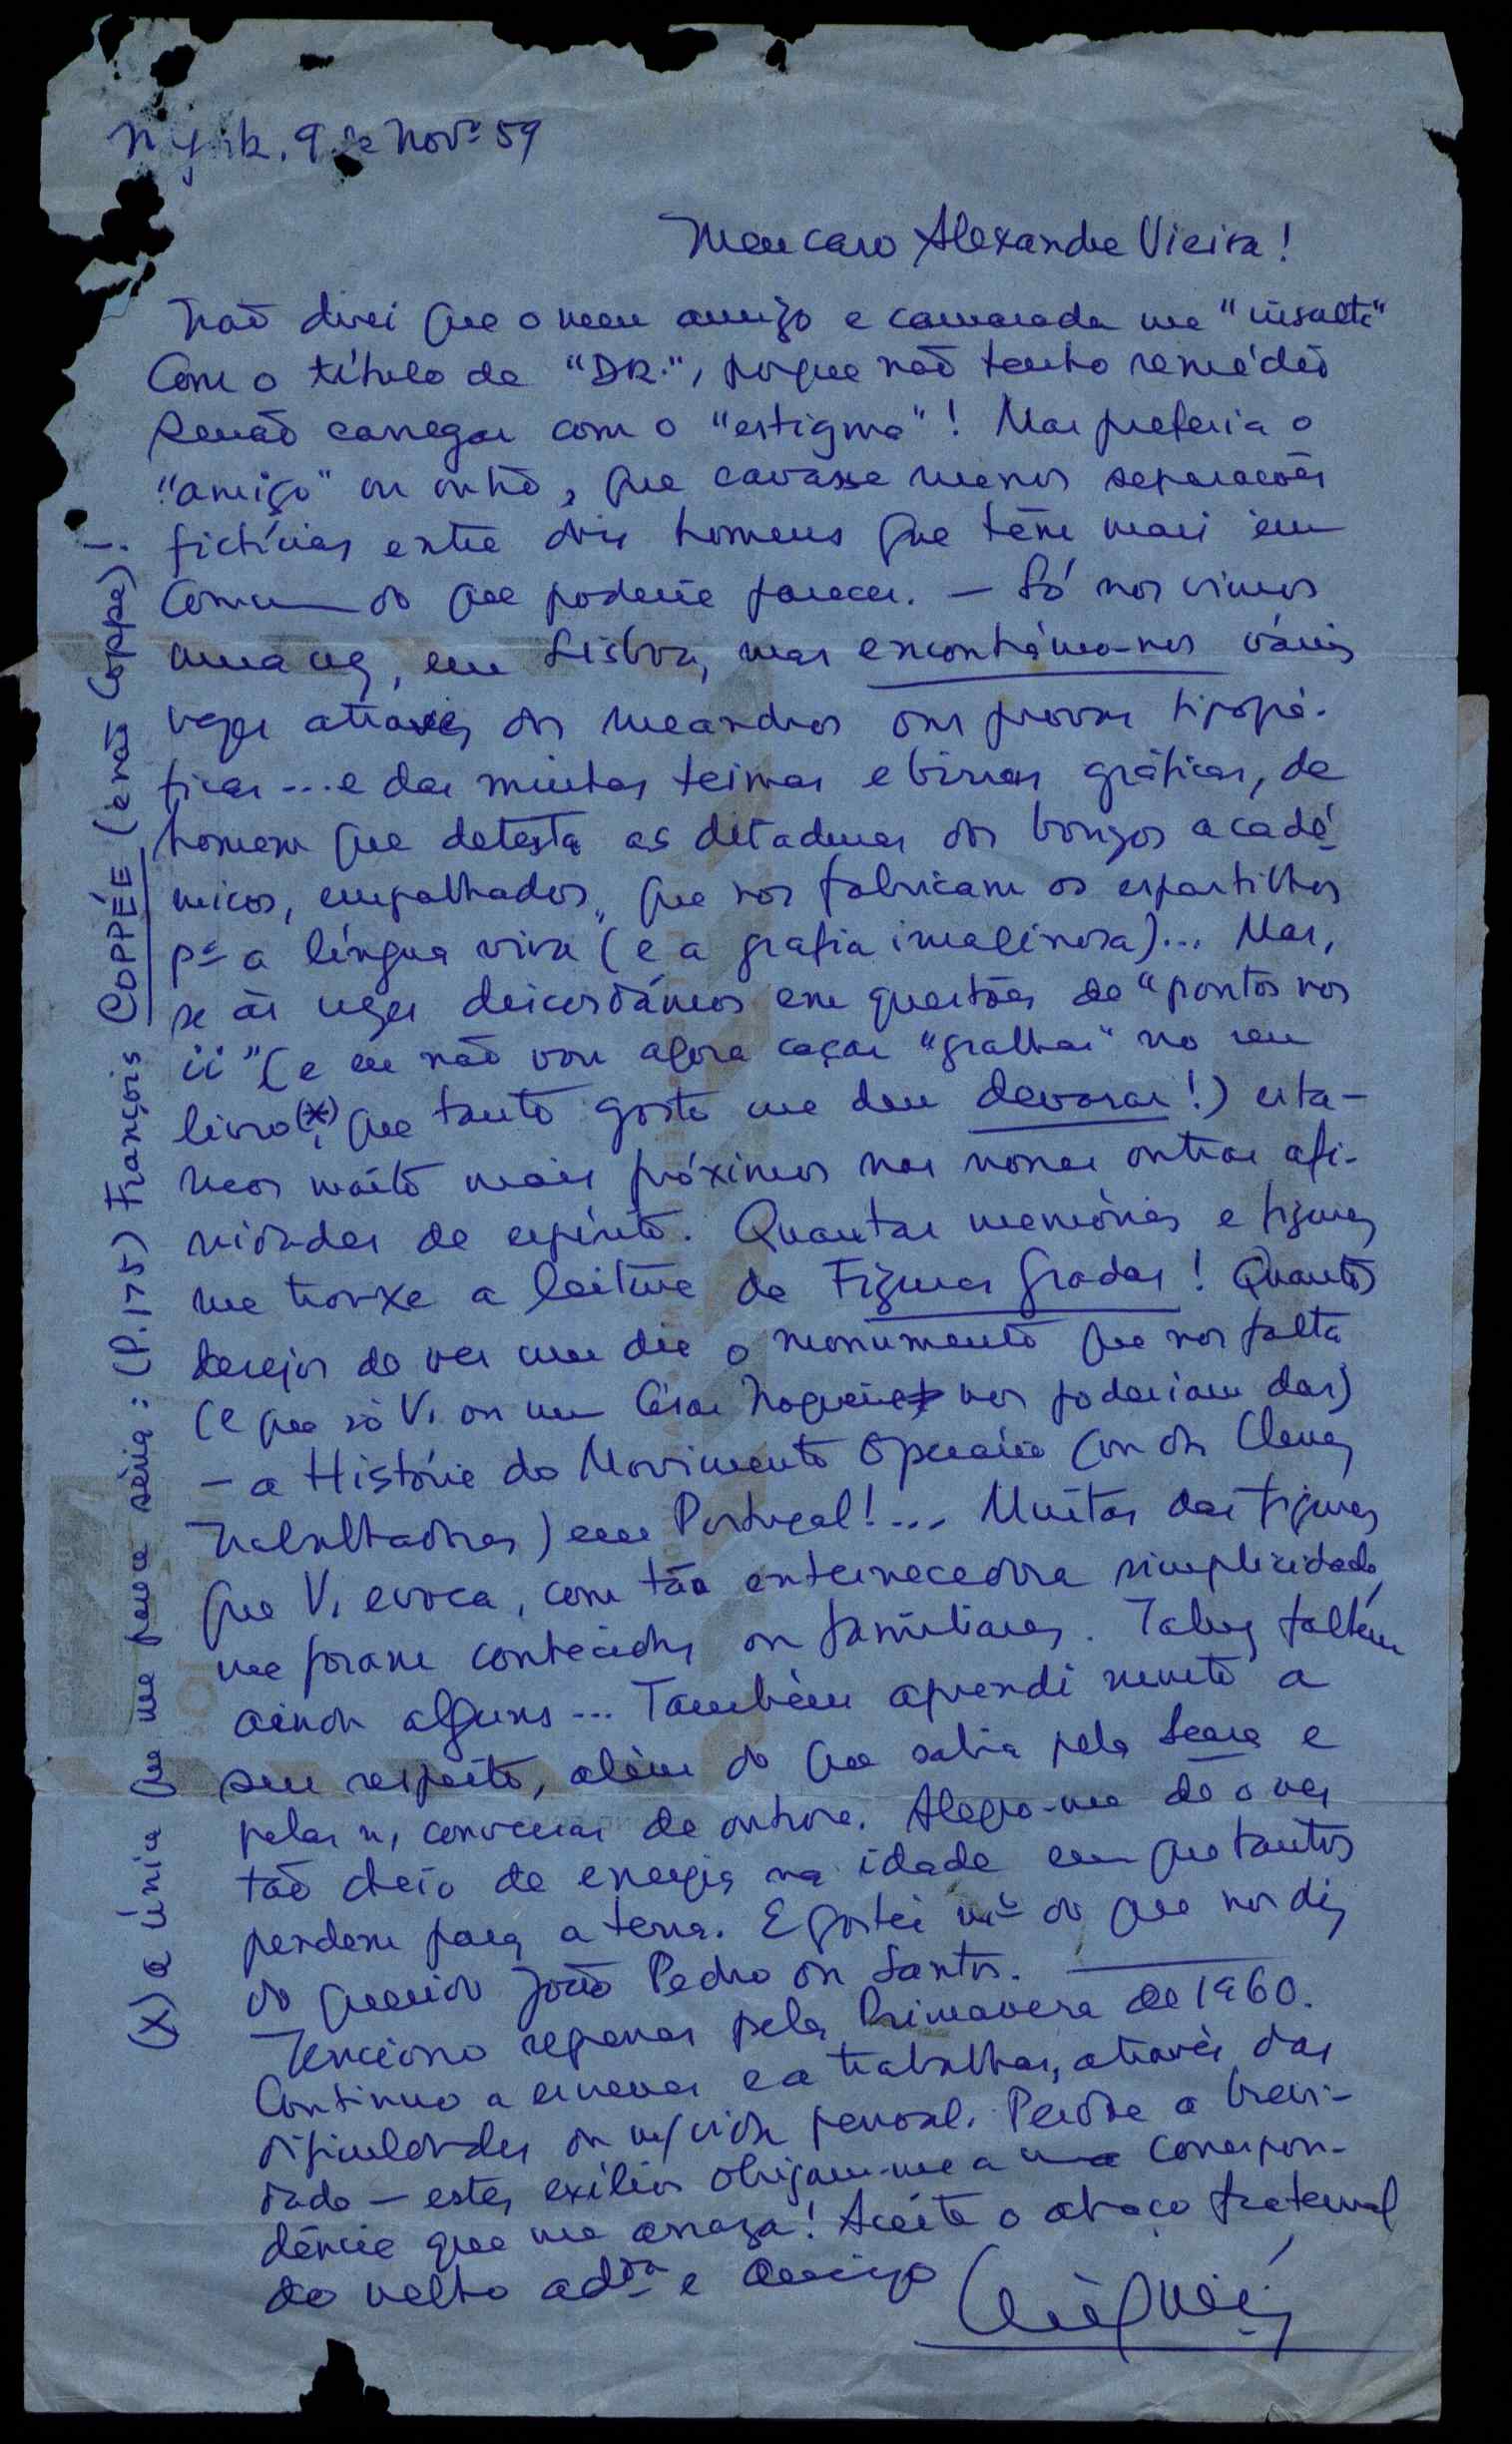 N York. 9 de Novº 59
Meu caro Alexandre Vieira!
Não direi que o meu amigo e camarada me "insulte"
com o título de "DR.", porque não tenho remédio
senão carregar com o "estigma"! Mas preferia o
"amigo" ou outro, que cavasse menos separações
fictícias entre dois homens que têm mais em
comum do que poderia parecer. — Só nos vimos
uma vez, em Lisboa, mas encontrámo-nos várias
vezes através dos meandros das provas tipográ-
ficas... e das minhas teimas e birras gráficas, de
homem que detesta as ditaduras dos bonzos acadé
micos, empalhados, que nos fabricam os espartilhos
pª a língua viva (e a grafia imaginosa)... Mas,
se às vezes discordámos em questões de "pontos nos
ii" (e eu não vou agora caçar "gralhas" no seu
livro(*), que tanto gosto me deu devorar!) esta-
mos muito mais próximos nas nossas outras afi-
nidades de espírito. Quantas memórias e figuras
me trouxe a leitura de Figuras Gradas! Quantos
desejos de ver um dia o monumento que nos falta
(e que só V. ou um César Nogueira nos poderiam dar)
— a História do Movimento Operário (ou das Classes
Trabalhadoras) em Portugal!... Muitas das figuras
que V. evoca, com tão enternecedora simplicidade,
me foram conhecidas ou familiares. Talvez faltem
ainda alguns... Também aprendi muito a
seu respeito, além do que sabia pela Seara e
pelas n, conversas de outrora. Alegro-me de o ver
tão cheio de energia na idade em que tantos
pendem para a terra. E gostei mtº do que nos diz
do querido João Pedro dos Santos.
Tenciono regressar pela Primavera de 1960.
Continuo a escrever e a trabalhar, através das
dificuldades da m/ vida pessoal. Perdoe a brevi-
dade — estes exílios obrigam-me a uma correspon-
dência que me arrasa! Aceite o abraço fraternal
do velho adºr e amigo
(X) a única que me parece séria: (P. 175) François COPPÉE (e não Coppe)!.